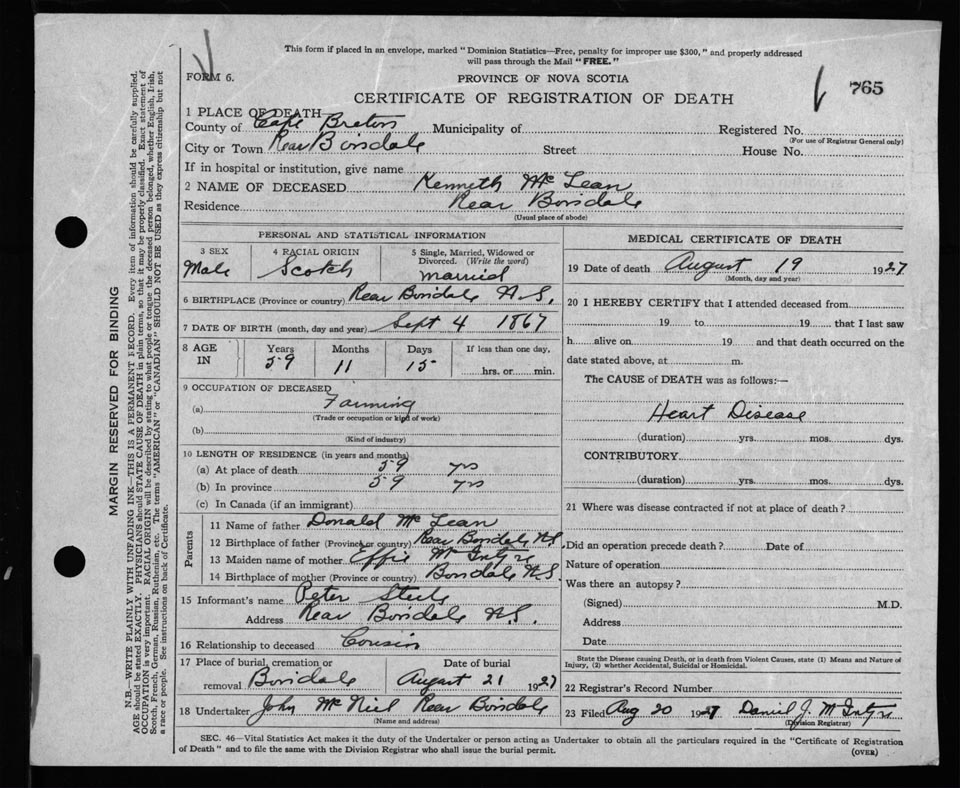 This form if placed in an envelope, marked "Dominion Statistics—Free, penalty for improper use $300," and properly addressed
will pass through the Mail "FREE."
FORM 6.
PROVINCE OF NOVA SCOTIA
765
CERTIFICATE OF REGISTRATION OF DEATH
1 PLACE OF DEATH
County of Cape Breton Municipality of Registered No.
(For use of Registrar General only)
City or Town Rear Boisdale Street House No.
If in hospital or institution, give name
2 NAME OF DECEASED Kenneth Mc Lean
Residence Rear Boisdale
(Usual place of abode)
PERSONAL AND STATISTICAL INFORMATION
3 SEX 4 RACIAL ORIGIN 5 Single, Married, Widowed or
Divorced. (Write the word)
Male Scotch married
6 BIRTHPLACE (Province or country) Rear Boisdale N.S.
7 DATE OF BIRTH (month, day and year) Sept 4 1867
8 AGE IN Years Months Days If less than one day,
59 11 15 hrs. or min.
9 OCCUPATION OF DECEASED
(a) Farming
(Trade or occupation or kind of work)
(b)
(Kind of industry)
10 LENGTH OF RESIDENCE (in years and months)
(a) At place of death 59 yrs
(b) In province 59 yrs
(c) In Canada (if an immigrant)
Parents
11 Name of father Donald Mc Lean
12 Birthplace of father (Province or country) Rear Boisdale N.S.
13 Maiden name of mother Effie Mc Intyre
14 Birthplace of mother (Province or country) Boisdale N.S.
15 Informant's name Peter Steele
Address Rear Boisdale N.S.
16 Relationship to deceased Cousin
17 Place of burial, cremation or Date of burial
removal Boisdale August 21 1927
18 Undertaker John Mc Niel Rear Boisdale
(Name and address)
MEDICAL CERTIFICATE OF DEATH
19 Date of death August 19 1927
(Month, day and year)
20 I HEREBY CERTIFY that I attended deceased from
19 to 19 that I last saw
h alive on 19 and that death occurred on the
date stated above, at m.
The CAUSE of DEATH was as follows:—
Heart Disease
(duration) yrs. mos. dys.
CONTRIBUTORY
(duration) yrs. mos. dys.
21 Where was disease contracted if not at place of death?
Did an operation precede death? Date of
Nature of operation
Was there an autopsy?
(Signed) M.D.
Address
Date
State the Disease causing Death, or in death from Violent Causes, state (1) Means and Nature of
Injury, (2) whether Accidental, Suicidal or Homicidal.
22 Registrar's Record Number
23 Filed Aug 20 1927 Daniel J. McIntyre
(Division Registrar)
SEC. 46—Vital Statistics Act makes it the duty of the Undertaker or person acting as Undertaker to obtain all the particulars required in the "Certificate of Registration
of Death" and to file the same with the Division Registrar who shall issue the burial permit.
(OVER)
MARGIN RESERVED FOR BINDING
N.B.—WRITE PLAINLY WITH UNFADING INK—THIS IS A PERMANENT RECORD. Every item of information should be carefully supplied.
AGE should be stated EXACTLY. PHYSICIANS should STATE CAUSE OF DEATH in plain terms, so that it may be properly classified. Exact statement of
OCCUPATION is very important. RACIAL ORIGIN will be described by stating to what people or tongue the deceased person belonged, whether English, Irish,
Scotch, French, German, Russian, Ruthenian, etc. The terms "AMERICAN" or "CANADIAN" SHOULD NOT BE USED as they express citizenship but not
a race or people. See instructions on back of Certificate.